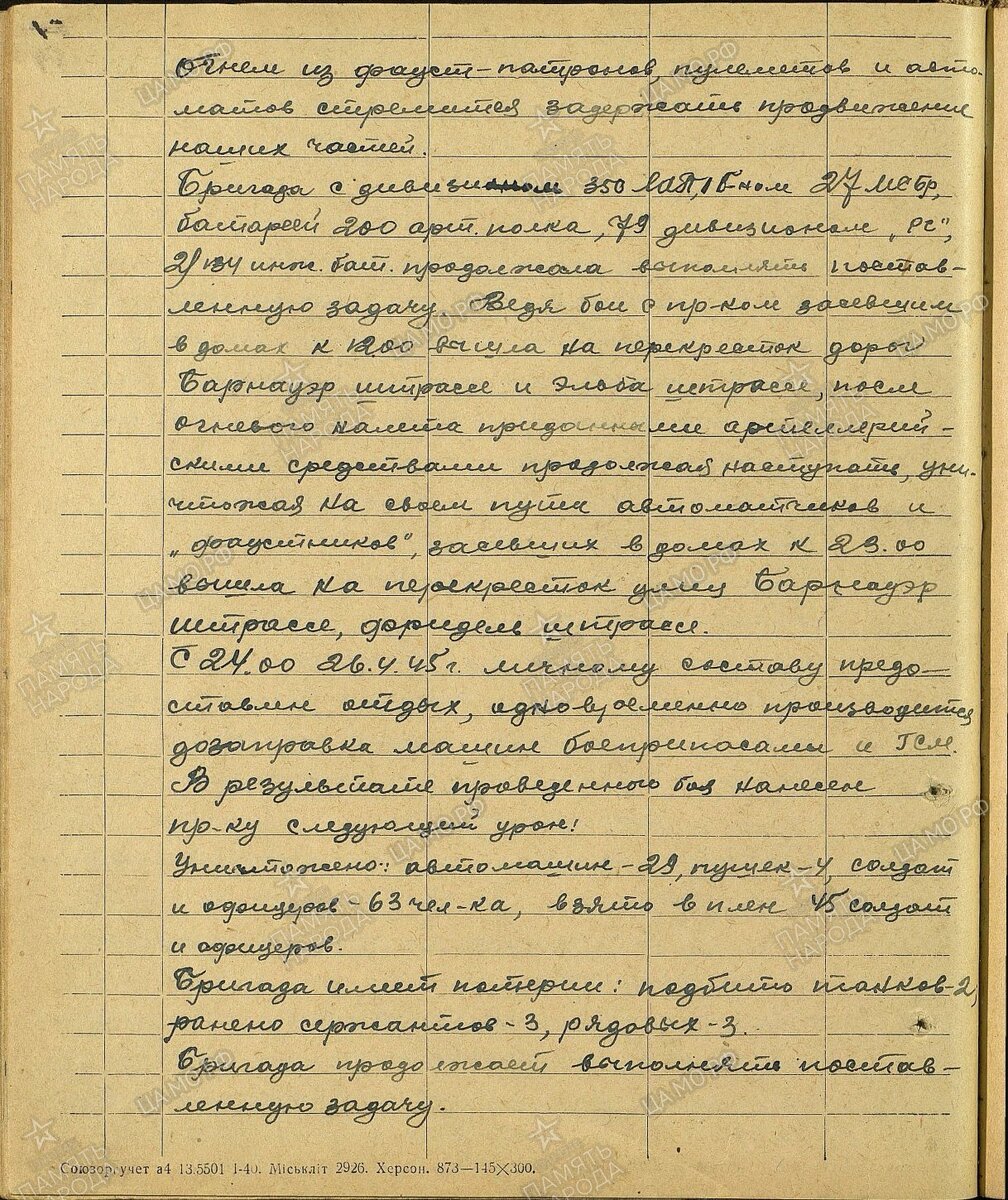 Огнем из фауст-патронов, пулеметов и авто-
матов стремится задержать продвижение
наших частей.
Бригада с дивизионом 350 ЛАП, 1 б-ном 27 МСбр,
батареей 200 арт. полка, 79 дивизионом „РС“,
2/134 инж. бат. продолжала выполнять постав-
ленную задачу. Ведя бои с пр-ком засевшим
в домах к 1200 вышла на перекресток дорог
Барнауэр штрассе и Эльба штрассе, после
огневого налета приданными артеллерий-
скими средствами продолжая наступать, уни-
чтожая на своем пути автоматчиков и
„фаустников“, засевших в домах к 23.00
вышла на перекресток улиц Барнауэр
штрассе, форидель штрассе.
С 24.00 26.4.45 г. личному составу предо-
ставлен отдых, одновременно производится
дозаправка машин боеприпасами и ГСМ.
В результате проведенного боя нанесен
пр-ку следующий урон:
Уничтожено: автомашин-29, пушек-4, солдат
и офицеров-63 чел-ка, взято в плен 45 солдат
и офицеров.
Бригада имеет потери: подбито танков-2,
ранено сержантов-3, рядовых-3.
Бригада продолжает выполнять постав-
ленную задачу.
Союзоргучет а4 13.5501 1-40. Міськліт 2926. Херсон. 873—145×300.
ПАМЯТЬ НАРОДА
ЦАМО.РФ